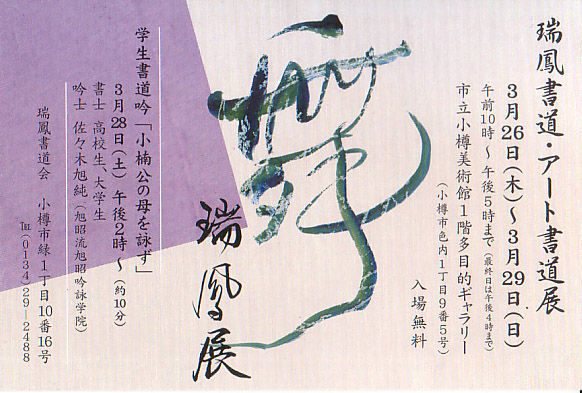 瑞鳳書道・アート書道展
3月26日(木)〜3月29日(日)
午前10時〜午後5時まで(最終日は午後4時まで)
市立小樽美術館1階多目的ギャラリー
(小樽市色内1丁目9番5号)
入場無料
舞
瑞鳳展
学生書道吟「小楠公の母を詠ず」
3月28日(土)午後2時〜(約10分)
書士 高校生、大学生
吟士 佐々木旭純(旭昭流旭昭吟詠学院)
瑞鳳書道会 小樽市緑1丁目10番16号
℡(0134)29-2488